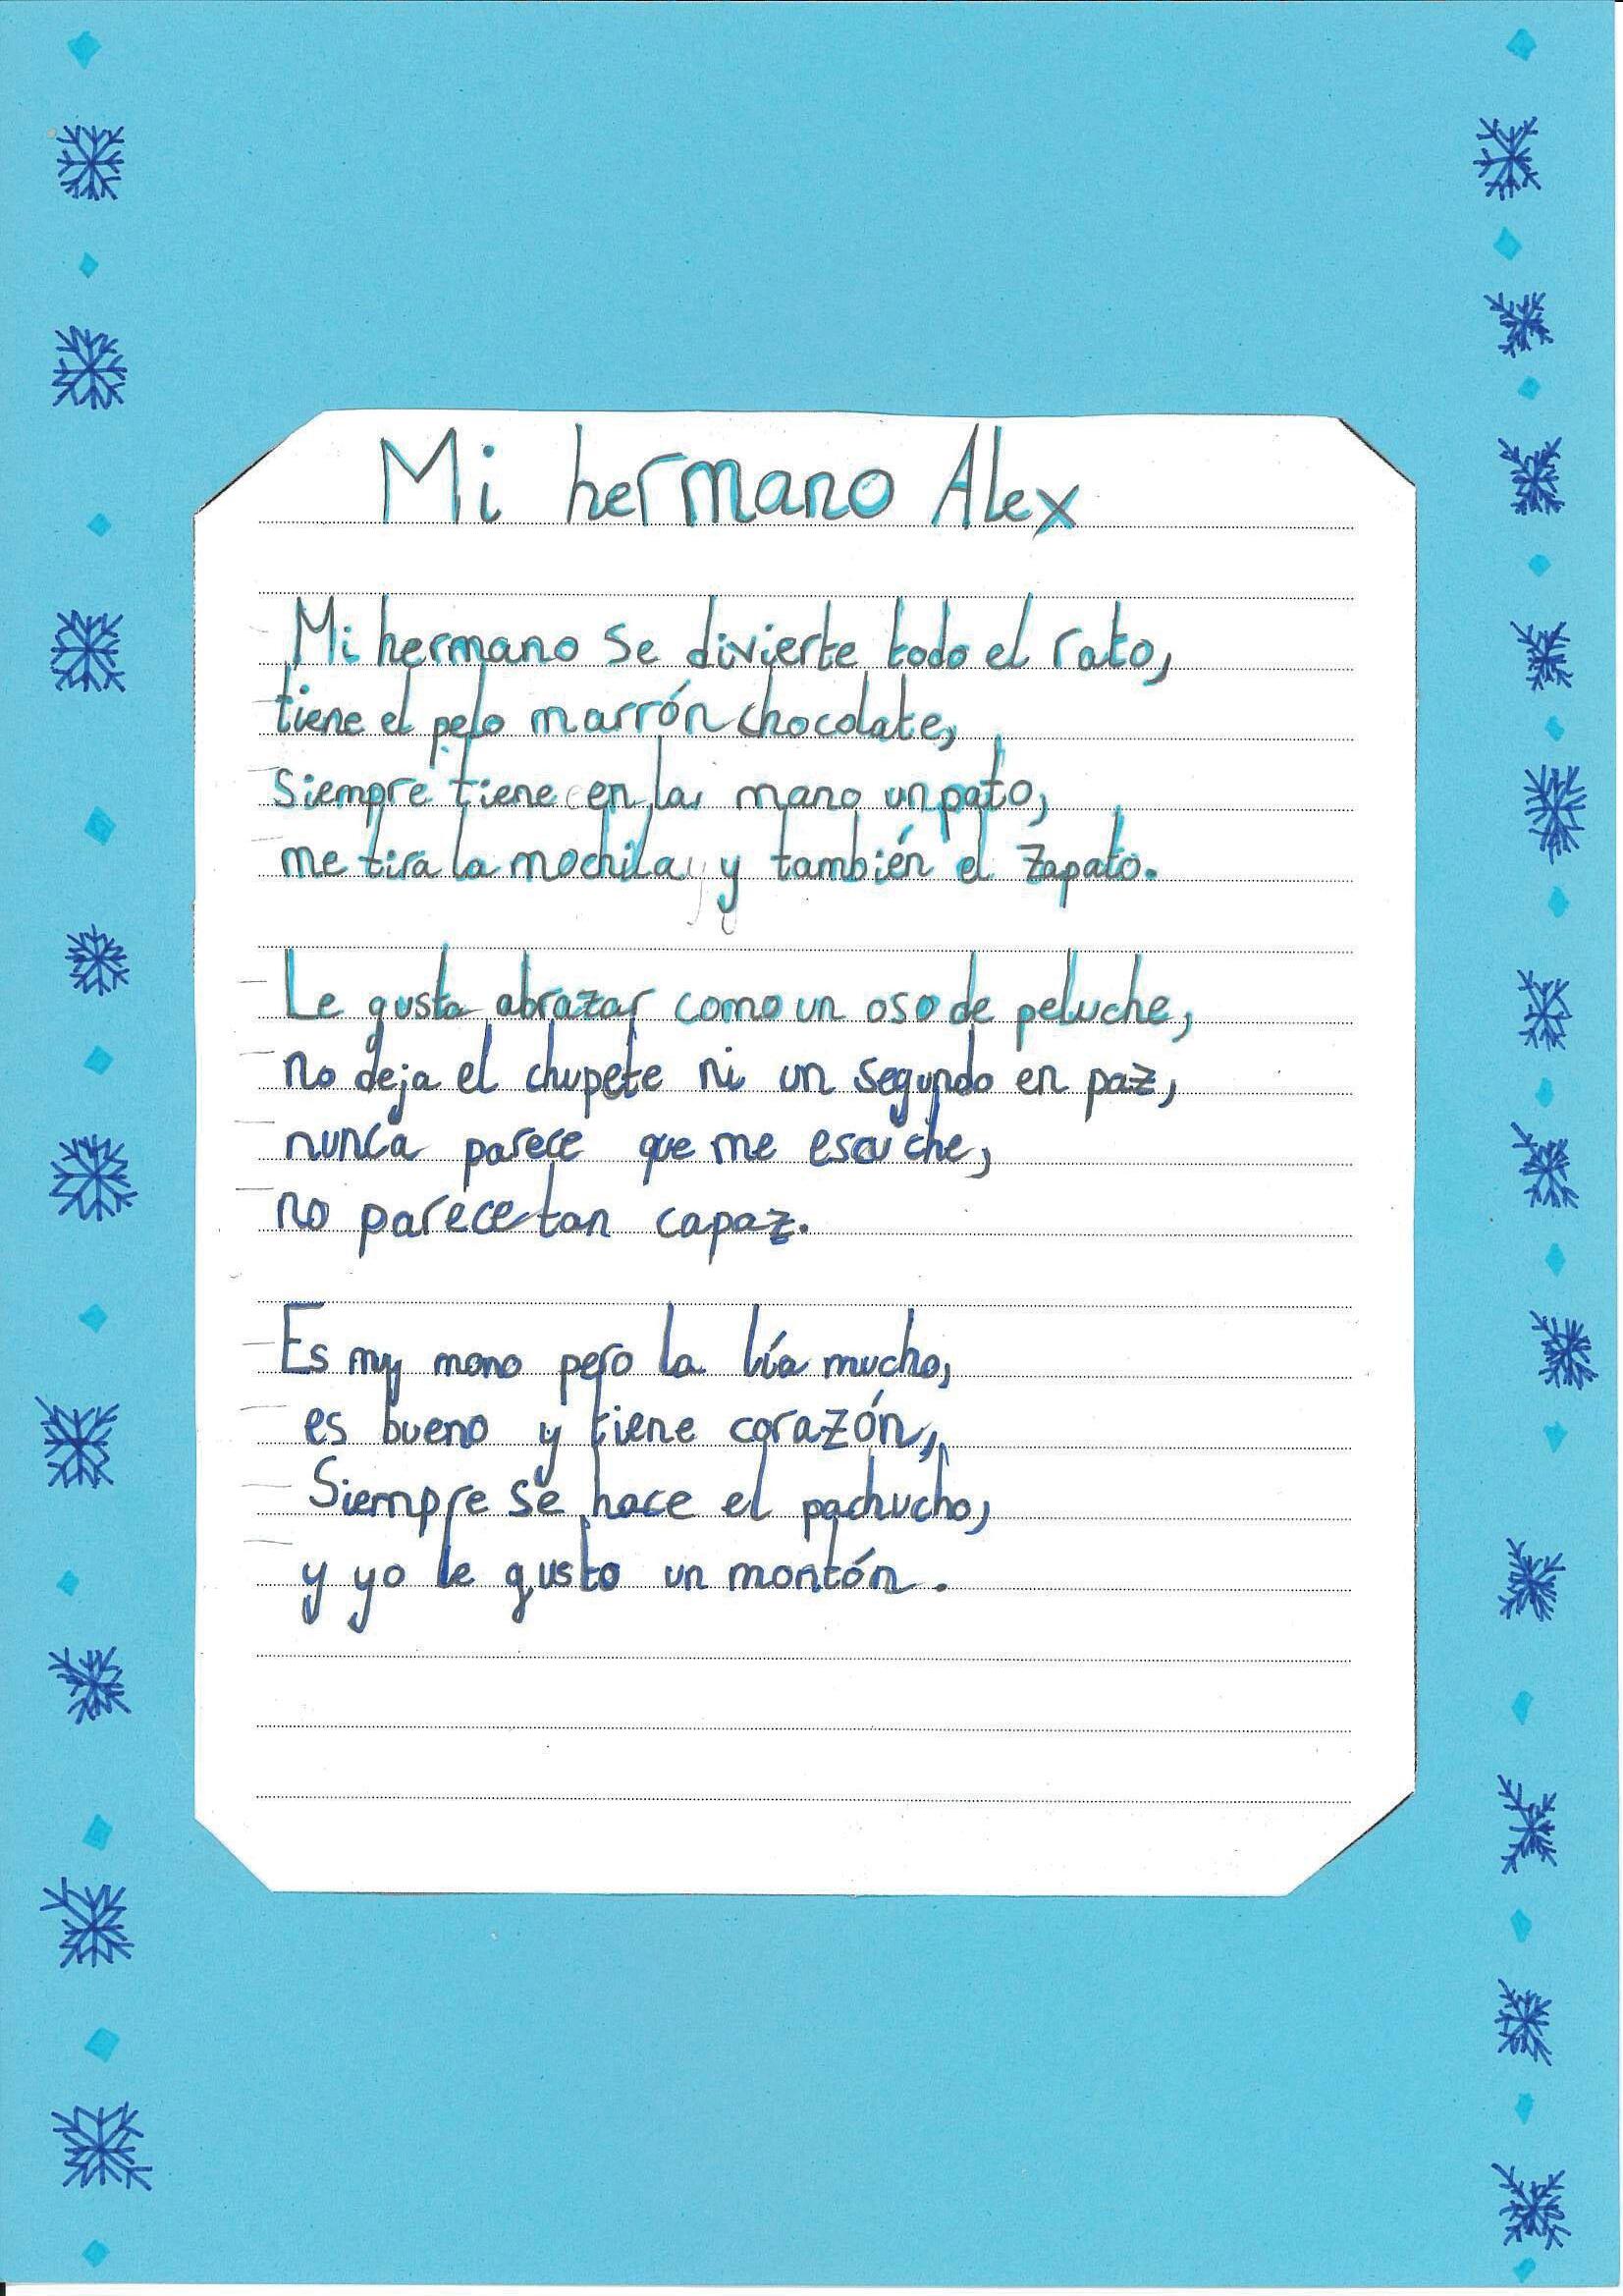 Mi hermano Alex
Mi hermano se divierte todo el rato,
tiene el pelo marrón chocolate,
siempre tiene en la mano un pato,
me tira la mochila y también el zapato.
Le gusta abrazar como un oso de peluche,
no deja el chupete ni un segundo en paz,
nunca parece que me escuche,
no parece tan capaz.
Es muy mono pero la lía mucho,
es bueno y tiene corazón,
Siempre se hace el pachucho,
y yo le gusto un montón.